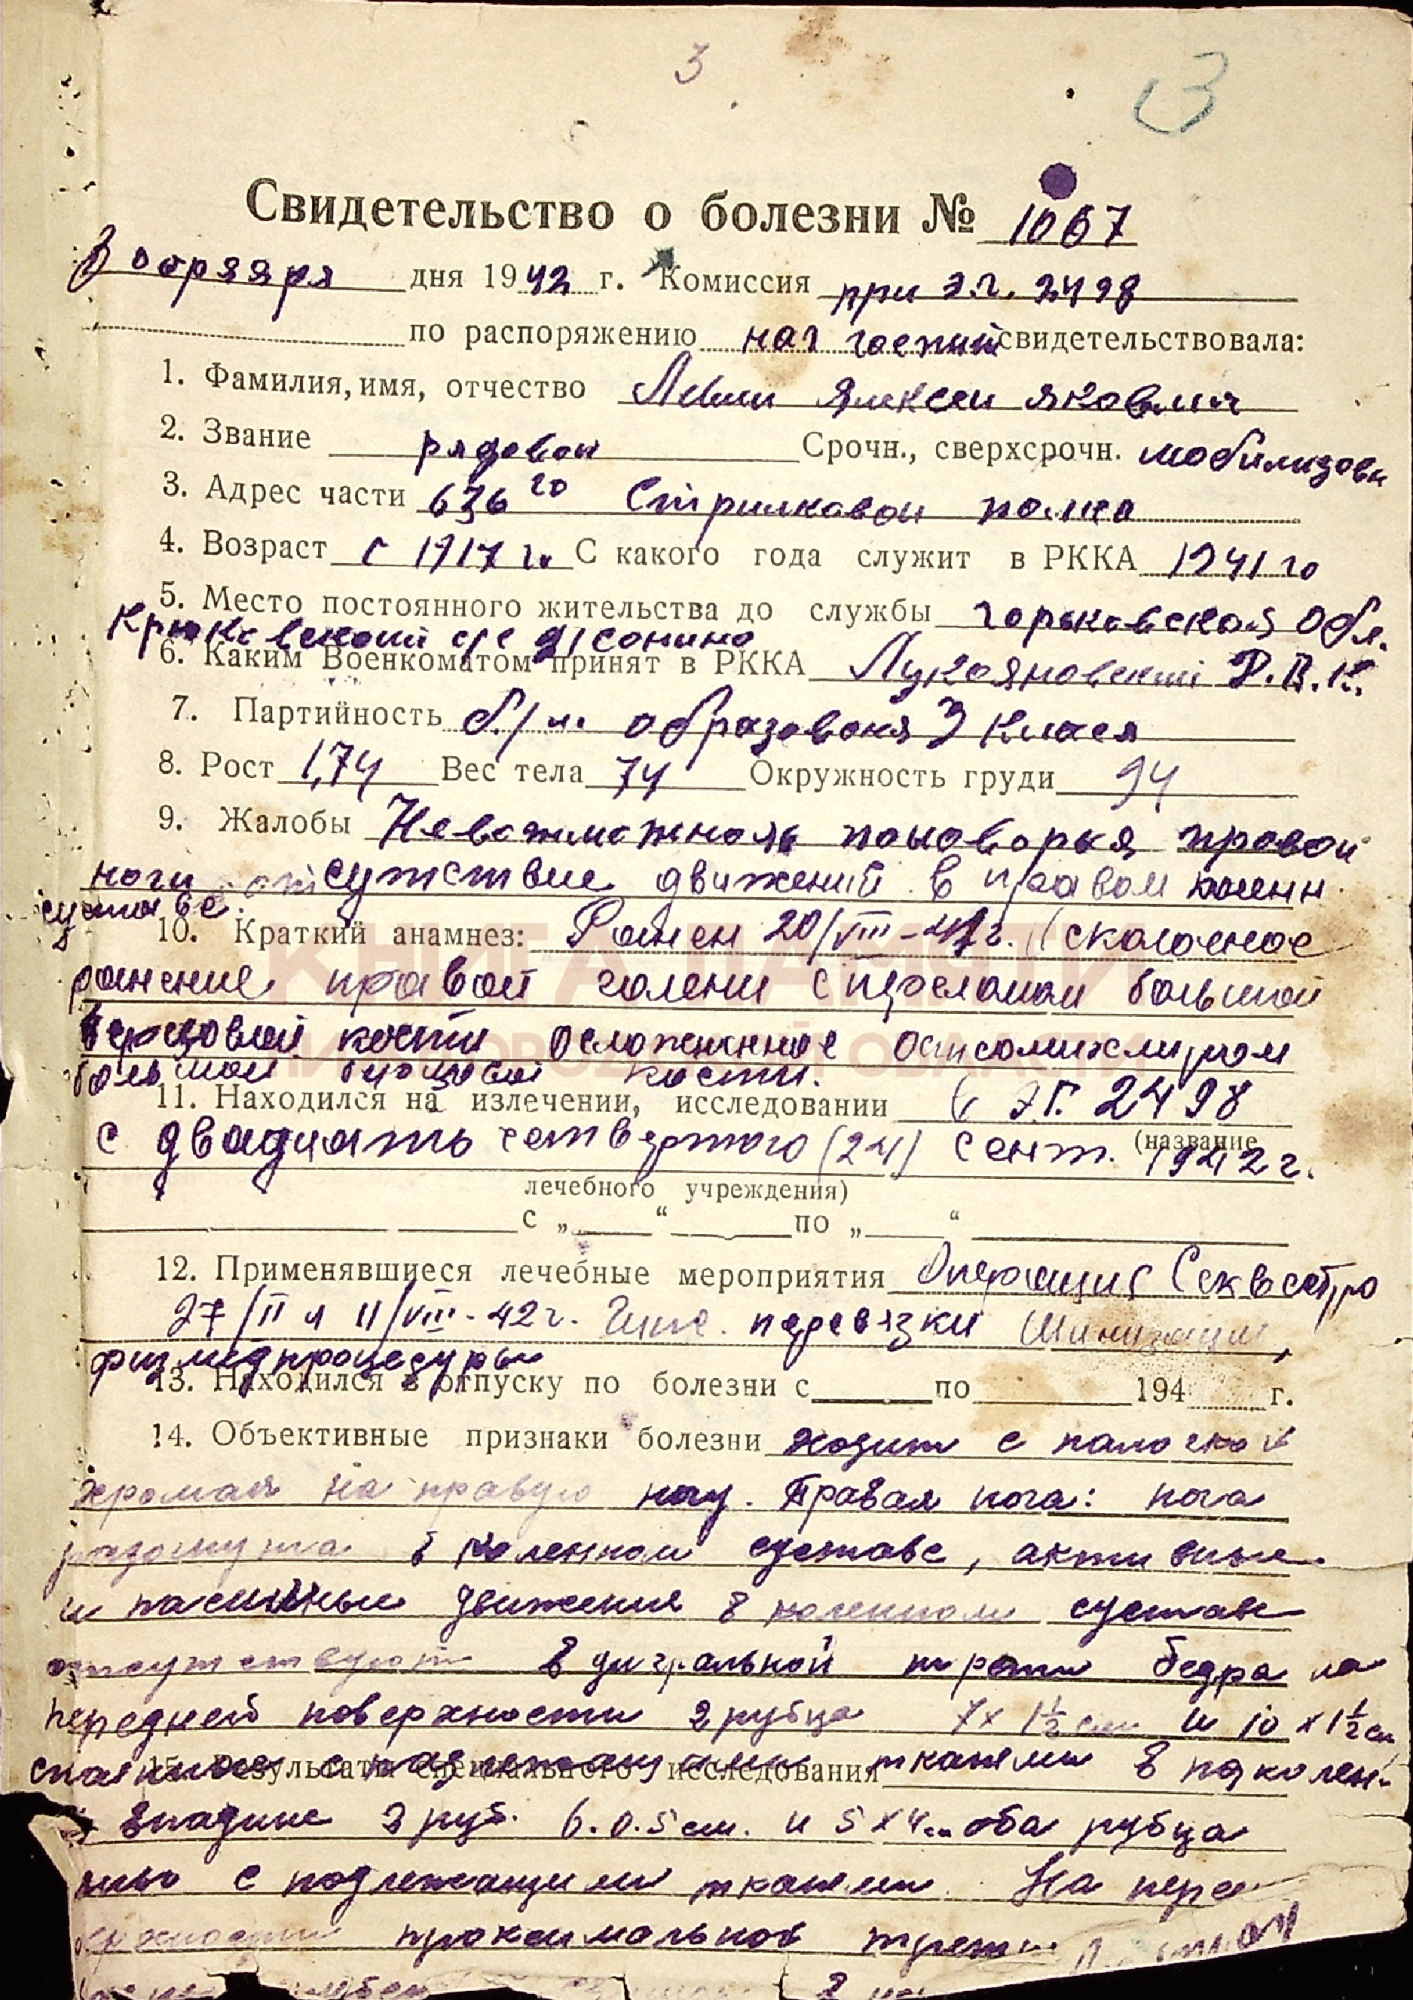 3
3
Свидетельство о болезни № 1067
3 ября дня 1942 г. Комиссия при э.г. 2498
по распоряжению нач госпит свидетельствовала:
1. Фамилия, имя, отчество Алексеи Яковлич
2. Звание рядовои Срочн., сверхсрочн. мобилизован
3. Адрес части 636 го Стрилковои полка
4. Возраст с 1917 г. С какого года служит в РККА 1941 го
5. Место постоянного жительства до службы горьковская Обл.
6. Каким Военкоматом принят в РККА Лукояновский Р.В.К.
7. Партийность б/п. образования 3 класса
8. Рост 1,74 Вес тела 74 Окружность груди 94
9. Жалобы правой
ноги отсутствие движений в правом коленн
суставе.
10. Краткий анамнез: Ранен 20/VIII-41г. (осколочное
ранение правой голени с переломом большой
берцовой кости осложненное остеомиелитом
большой берцовой кости.
11. Находился на излечении, исследовании в ЭГ. 2498
(название
с двадцать четвертого (24) сент. 1942 г.
лечебного учреждения)
с „ “ по „ “
12. Применявшиеся лечебные мероприятия Операция Секвестро
27/II и 11/VIII-42 г. Гипс. перевязки
физмедпроцедуры
13. Находился в отпуску по болезни с по 194 г.
14. Объективные признаки болезни ходит с палочкой
хромая на правую ногу. Правая нога: нога
разогнута в коленном суставе, активные
и пассивные движения в коленном суставе
отсутствуют В трети бедра на
передней поверхности 2 рубца 7 х 1½ см и 10 х 1½ см
спаянные с подлежащими тканями В подколен-
15. Результаты специального исследования
й впадине 2 руб. 6. 0.5 см. и 5 х 4 см оба рубца
с подлежащими тканями. На пере
проксимальной трети